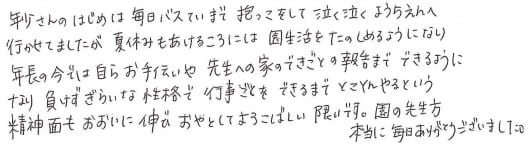 年少さんのはじめは毎日バスていまで抱っこをして泣く泣くようちえんへ
行かせてましたが夏休みもあけるころには園生活をたのしめるようになり
年長の今では自らお手伝いや先生への家のできごとの報告まできるように
なり負けずぎらいな性格で行事ごとをできるまでとことんやるという
精神面もおおいに伸びおやとしてよろこばしい限いです。園の先生方
本当に毎日ありがとうございました。